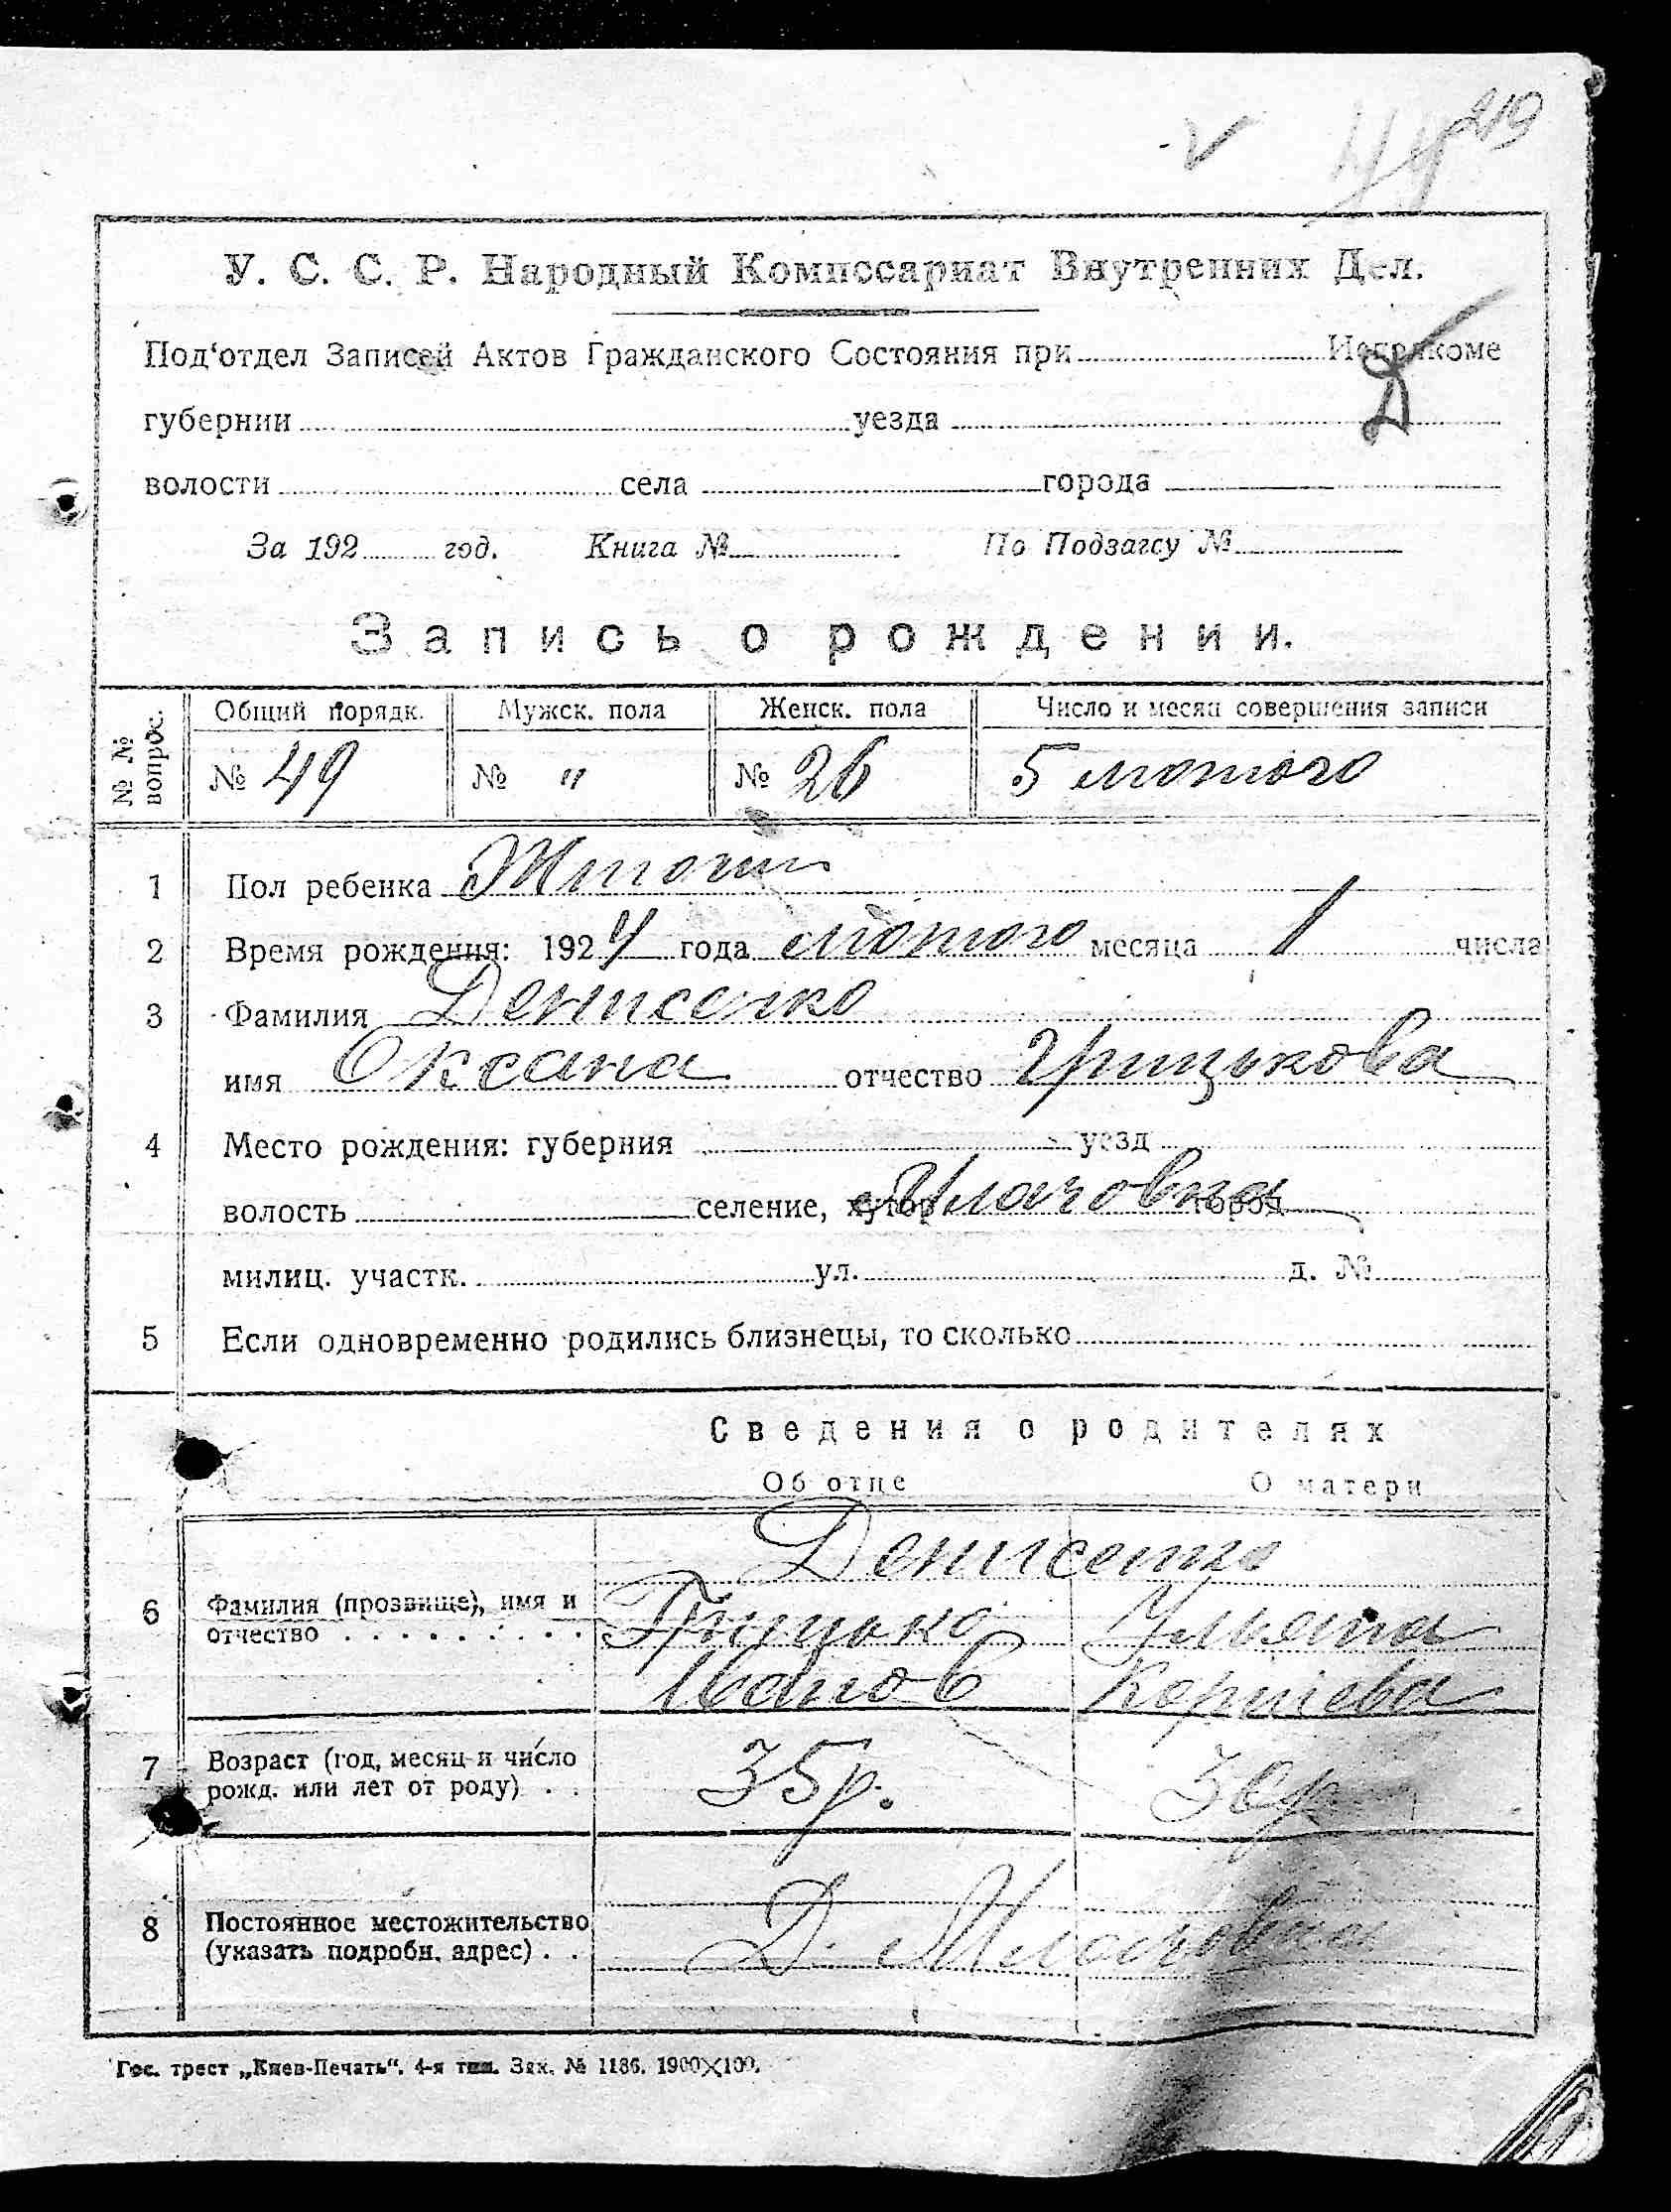 219
У. С. С. Р. Народный Комиссариат Внутренних Дел.
Под‘отдел Записей Актов Гражданского Состояния при Исполкоме
Д
губернии уезда
волости села города
За 192 год. Книга № По Подзагсу №
Запись о рождении.
№ № вопрос. Общий порядк. Мужск. пола Женск. пола Число и месяц совершения записи
№ 49 № " № 26 5 лютого
1 Пол ребенка Жіночий
2 Время рождения: 1924 года лютого месяца 1 числа
3 Фамилия Денисенко
имя Оксана отчество Грицькова
4 Место рождения: губерния уезд
волость селение, хутор Млачовка город
милиц. участк. ул. д. №
5 Если одновременно родились близнецы, то сколько
Сведения о родителях
Об отце О матери
Денисенко
6 Фамилия (прозвище), имя и Грицько Ульяна
отчество Іванов Корнієва
7 Возраст (год, месяц и число 35 р. 30 р.
рожд. или лет от роду)
8 Постоянное местожительство Д. Млачовка
(указать подробн. адрес)
Гос. трест „Киев-Печать“. 4-я тип. Зак. № 1186. 1900×100.